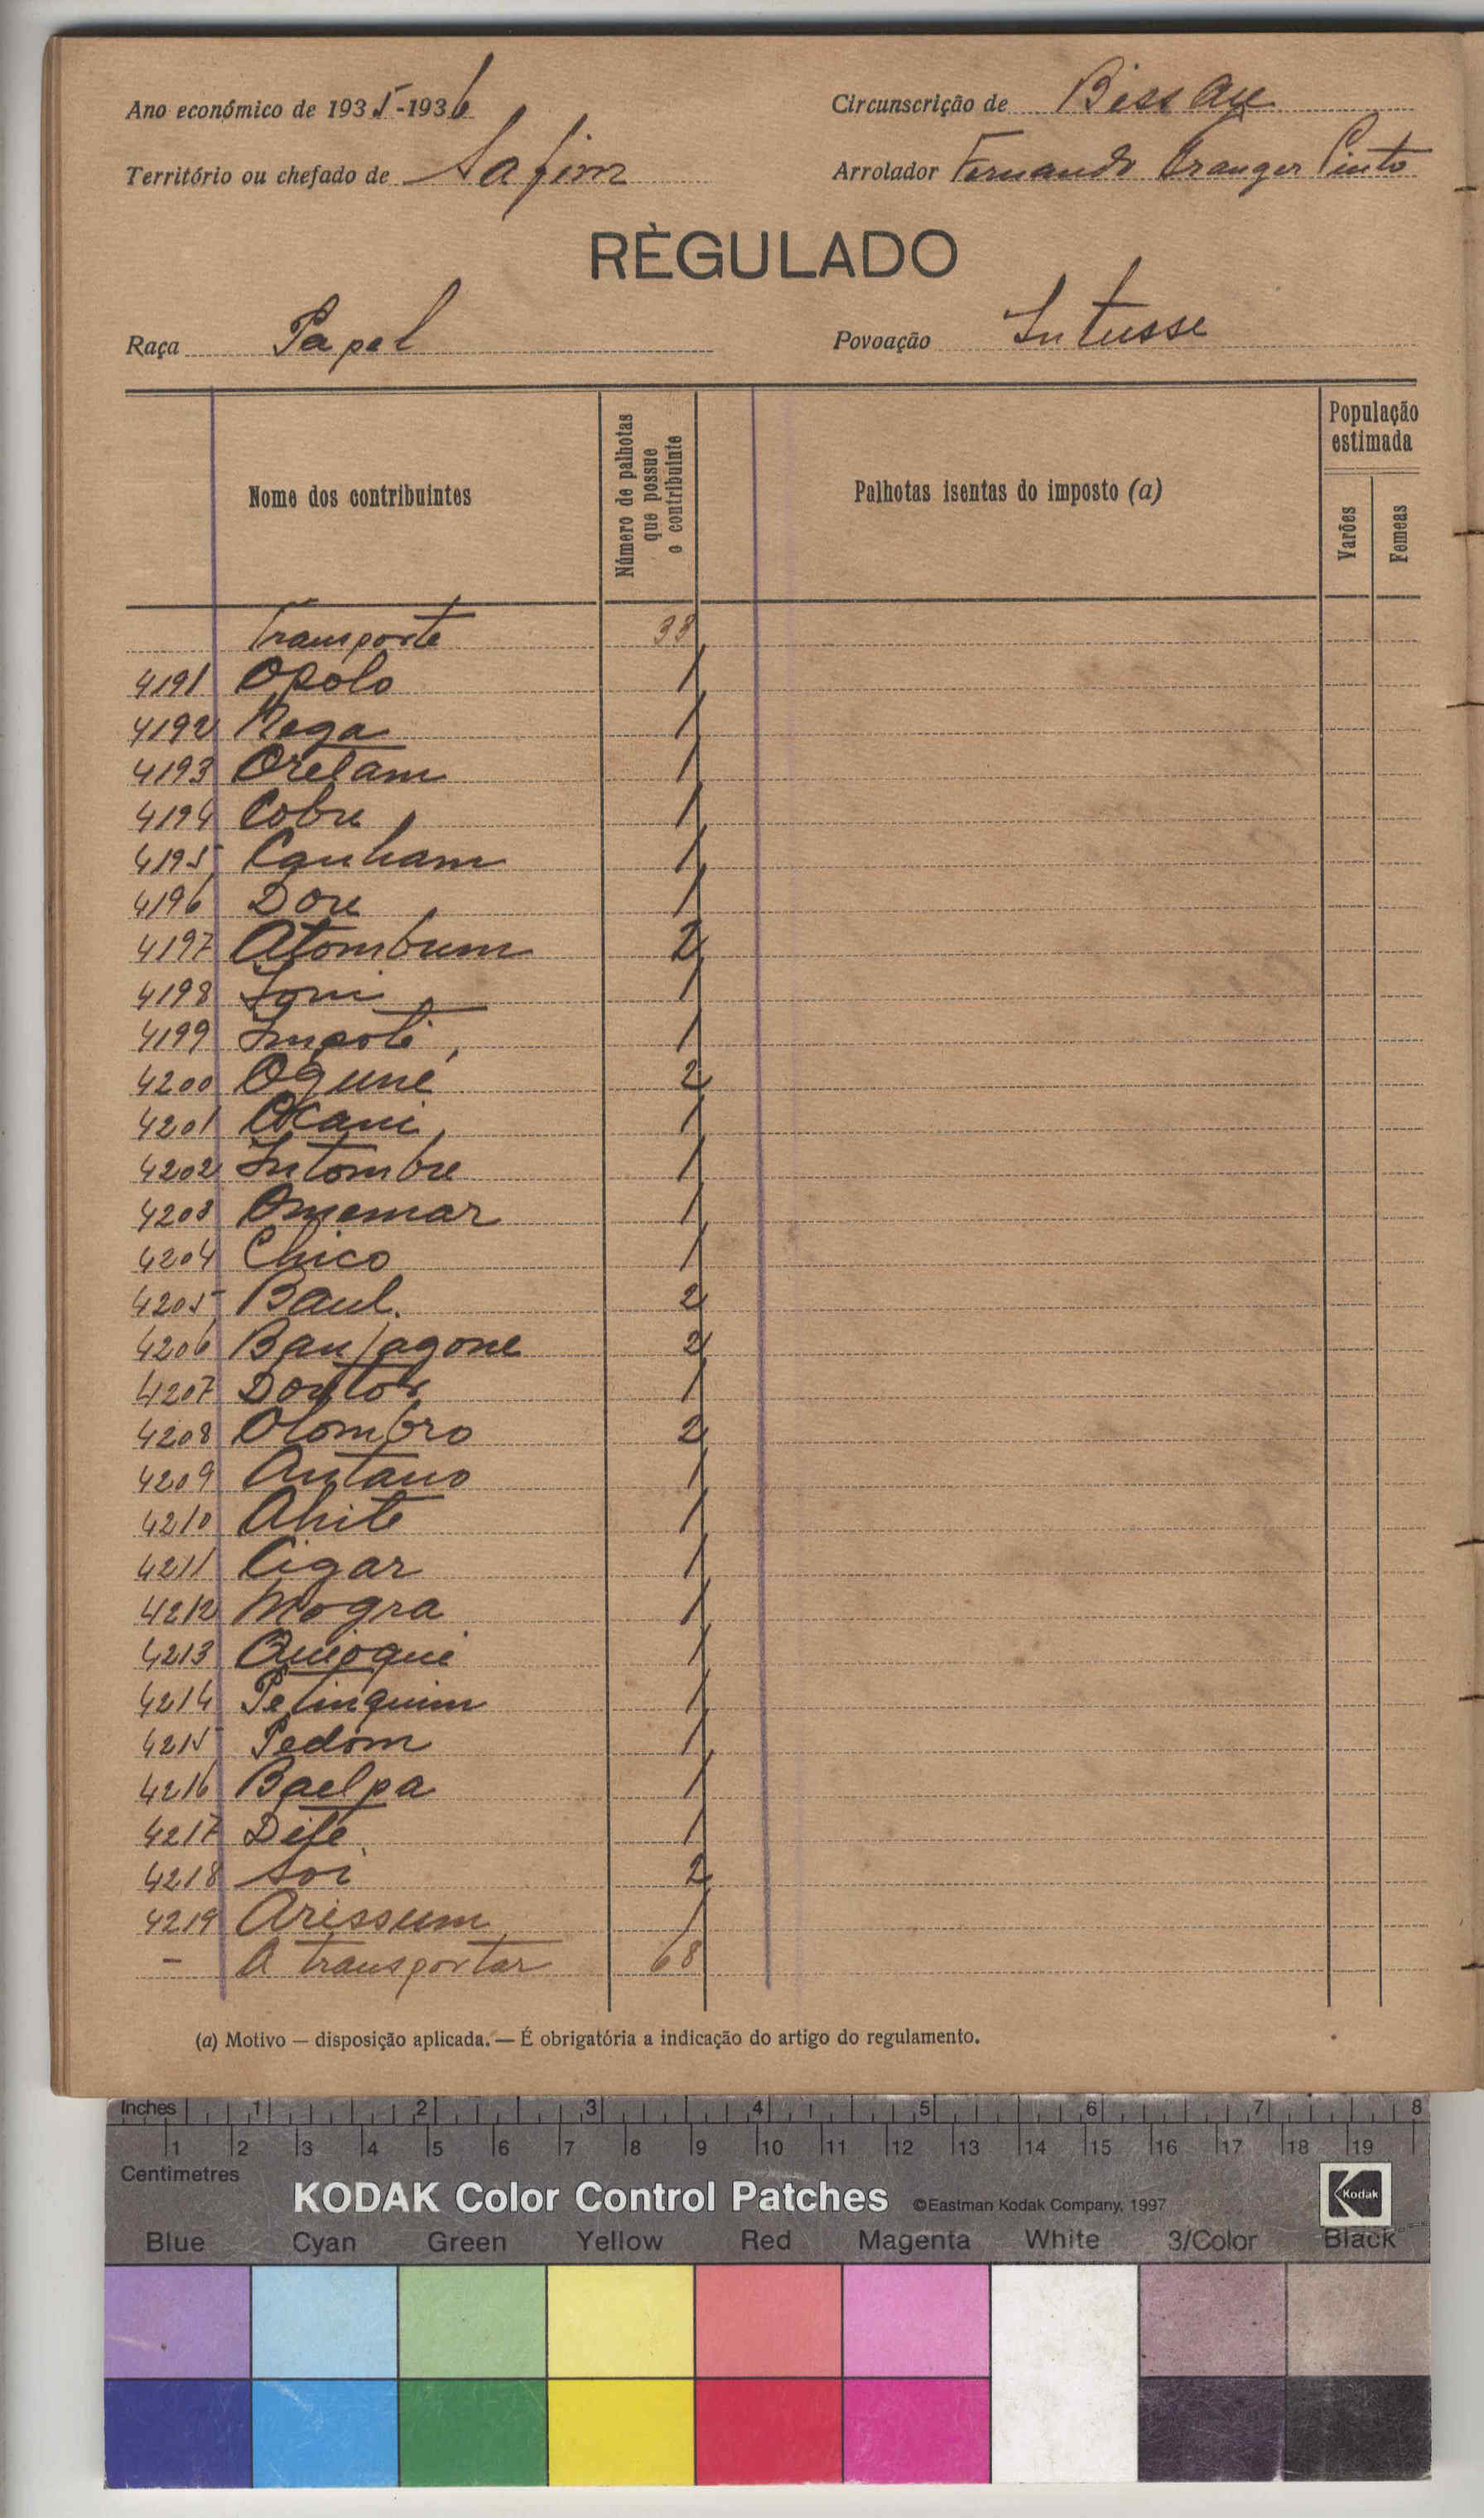 Ano económico de 1935-1936
Circunscrição de Bissau
Território ou chefado de Safim
Arrolador Fernando Granger Pinto
RÈGULADO
Raça Papel
Povoação Intusse
Nome dos contribuintes
Número de palhotas que possue o contribuinte
Palhotas isentas do imposto (a)
População estimada
Varões
Femeas
Transporte 33
4191 Opolo 1
4192 Nega 1
4193 Oretam 1
4194 Cobre 1
4195 Canham 1
4196 Dore 1
4197 Atombum 2
4198 Joni 1
4199 Impoti 1
4200 Oguné 2
4201 Ocani 1
4202 Intombre 1
4203 Omemar 1
4204 Chico 1
4205 Baul. 2
4206 Banjagone 2
4207 Doutor 1
4208 Olombro 2
4209 Antano 1
4210 Ahite 1
4211 Cigar 1
4212 Mogra 1
4213 Quioqui 1
4214 Petinquim 1
4215 Pedom 1
4216 Baelpa 1
4217 Dité 1
4218 Soi 2
4219 Arissum 1
- A transportar 68
(a) Motivo — disposição aplicada. — É obrigatória a indicação do artigo do regulamento.
Inches 1 2 3 4 5 6 7 8
1 2 3 4 5 6 7 8 9 10 11 12 13 14 15 16 17 18 19
Centimetres
KODAK Color Control Patches ©Eastman Kodak Company, 1997 Kodak
Blue Cyan Green Yellow Red Magenta White 3/Color Black